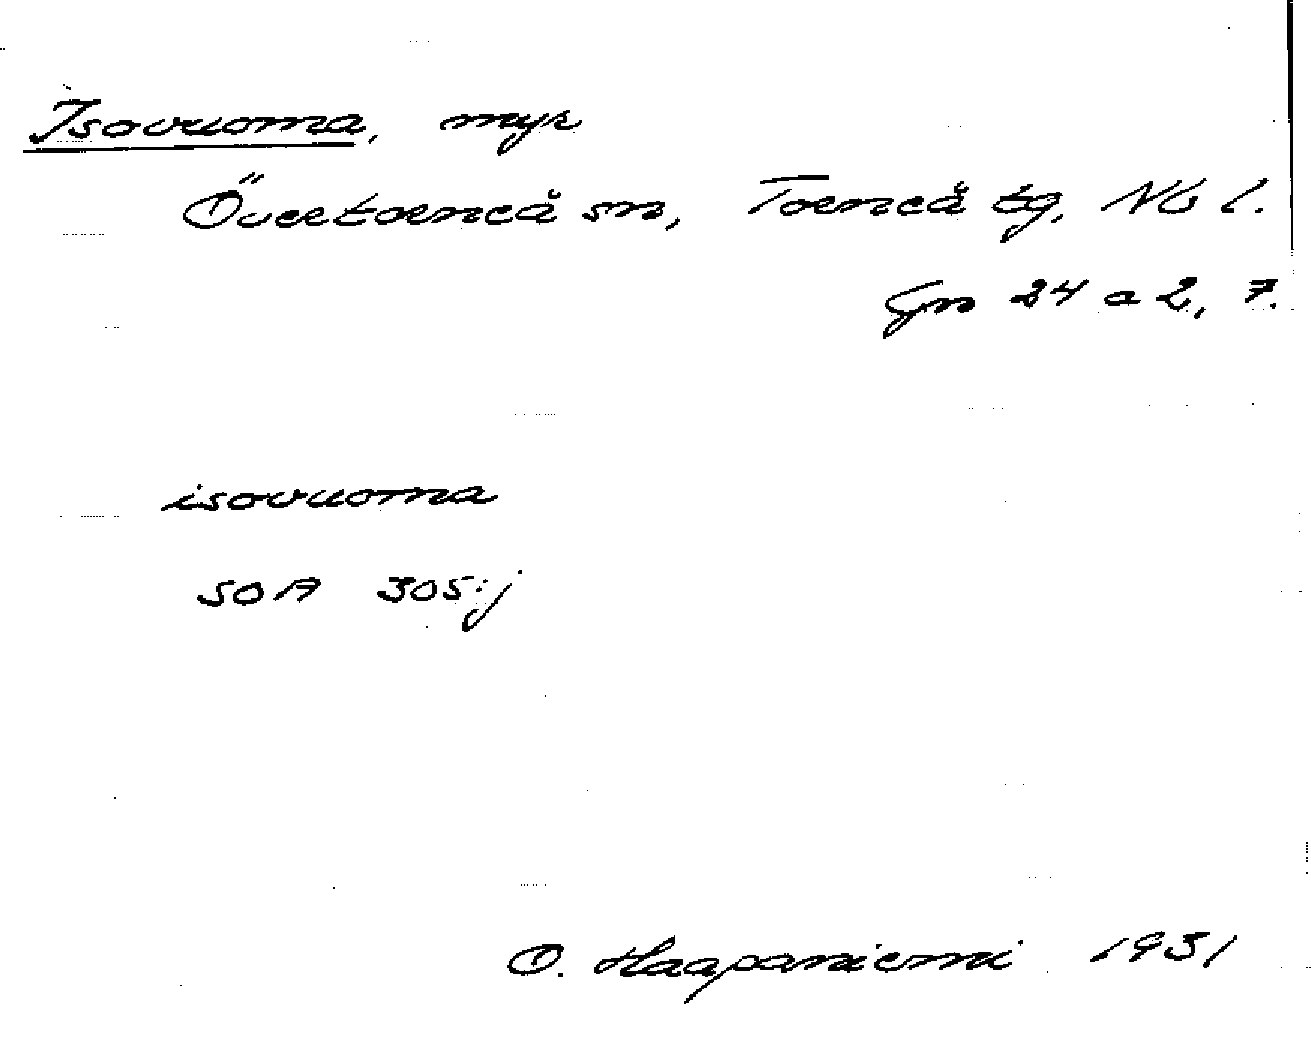 Isovuoma, myr
Övertorneå sn, Torneå tg. Nb l.
Gn 24 a 2, 7.
isovuoma
SOA 305:j
O. Haapaniemi 1931